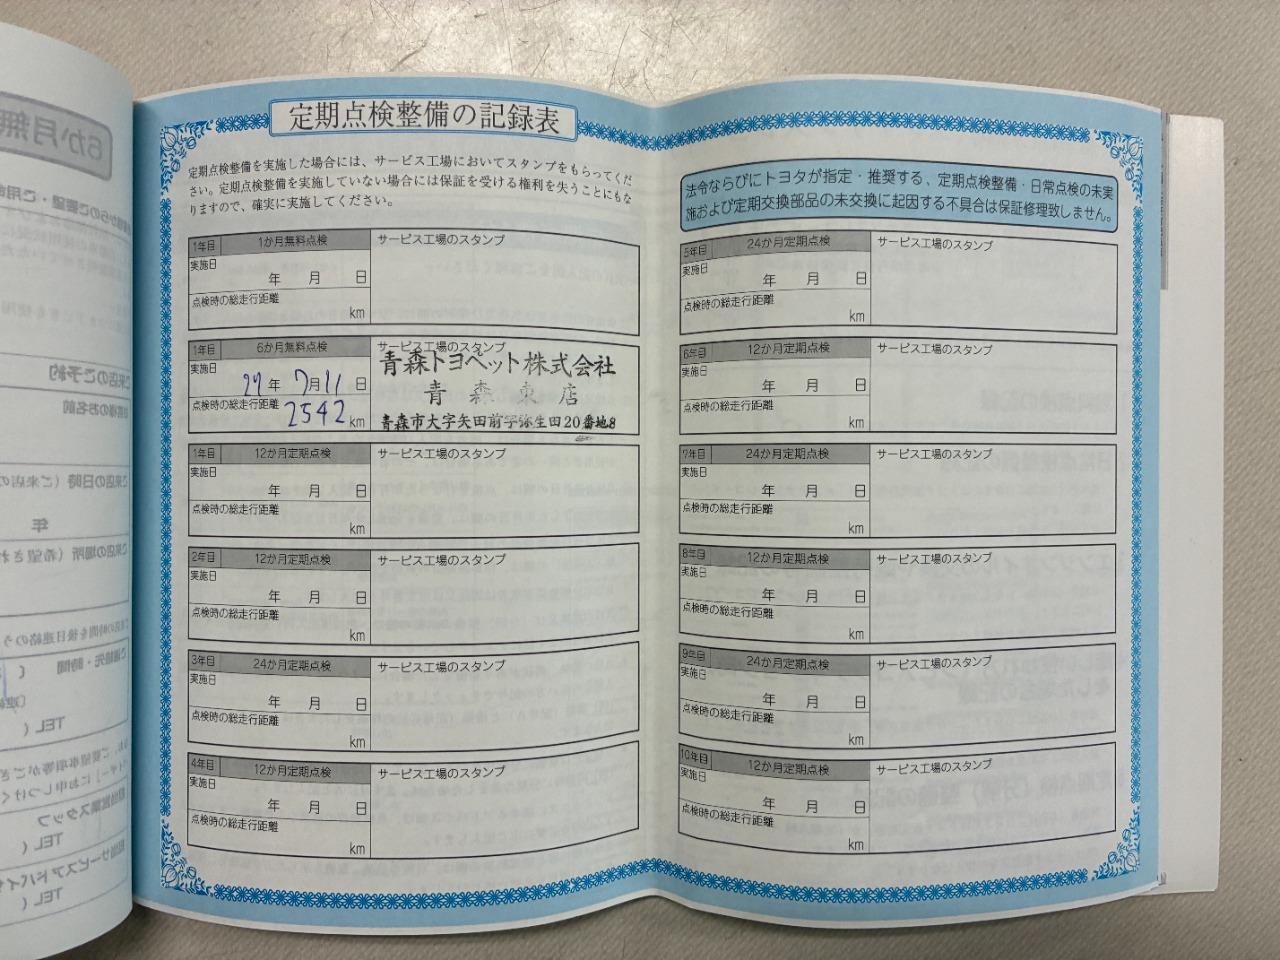 定期点検整備の記録表
定期点検整備を実施した場合には、サービス工場においてスタンプをもらってくだ
さい。定期点検整備を実施していない場合には保証を受ける権利を失うことにもな
りますので、確実に実施してください。
1年目 1か月無料点検 サービス工場のスタンプ
実施日
年 月 日
点検時の総走行距離
km
1年目 6か月無料点検 サービス工場のスタンプ
実施日
27年 7月11日
点検時の総走行距離
2542 km
青森トヨペット株式会社
青森東店
青森市大字矢田前字弥生田20番地8
1年目 12か月定期点検 サービス工場のスタンプ
実施日
年 月 日
点検時の総走行距離
km
2年目 12か月定期点検 サービス工場のスタンプ
実施日
年 月 日
点検時の総走行距離
km
3年目 24か月定期点検 サービス工場のスタンプ
実施日
年 月 日
点検時の総走行距離
km
4年目 12か月定期点検 サービス工場のスタンプ
実施日
年 月 日
点検時の総走行距離
km
法令ならびにトヨタが指定・推奨する、定期点検整備・日常点検の未実
施および定期交換部品の未交換に起因する不具合は保証修理致しません。
5年目 24か月定期点検 サービス工場のスタンプ
実施日
年 月 日
点検時の総走行距離
km
6年目 12か月定期点検 サービス工場のスタンプ
実施日
年 月 日
点検時の総走行距離
km
7年目 24か月定期点検 サービス工場のスタンプ
実施日
年 月 日
点検時の総走行距離
km
8年目 12か月定期点検 サービス工場のスタンプ
実施日
年 月 日
点検時の総走行距離
km
9年目 24か月定期点検 サービス工場のスタンプ
実施日
年 月 日
点検時の総走行距離
km
10年目 12か月定期点検 サービス工場のスタンプ
実施日
年 月 日
点検時の総走行距離
km